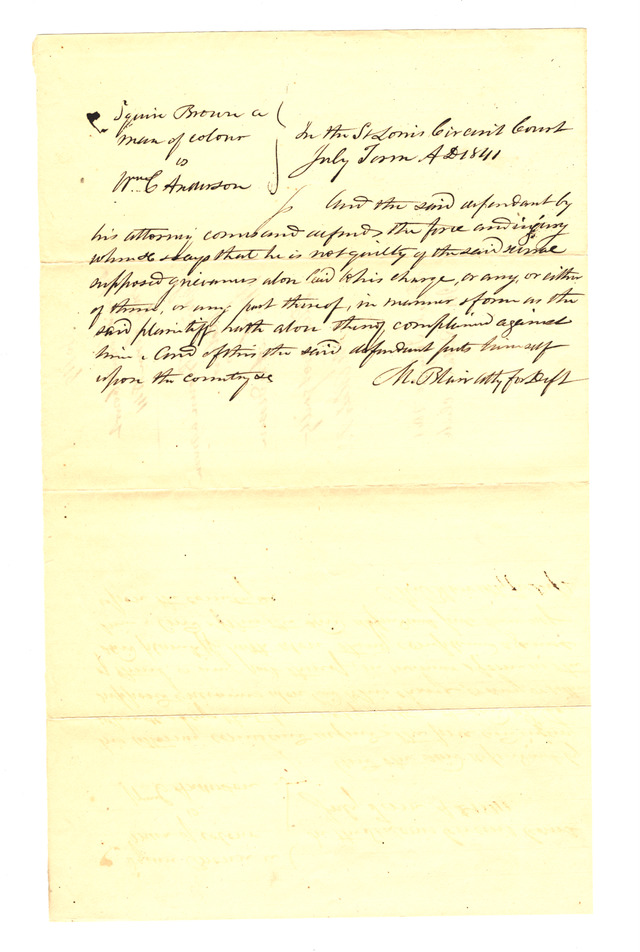 Squire Brown a
man of colour
vs
Wm C Anderson
In the St Louis Circuit Court
July Term AD 1841
And the said defendant by
his attorney comes and defends the force and injury
when &c & says that he is not guilty of the said
supposed grievances above laid to his charge, or any, or either
of them, or any part thereof, in manner & form as the
said plaintiff hath above thereof complained against
him. And of this the said defendant puts himself
upon the country &c
M. Blair atty for Deft